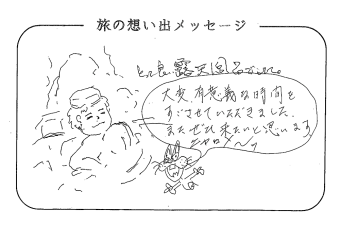 旅の想い出メッセージ
とても良い露天風呂でした。
大変有意義な時間を
すごさせていただきました。
またぜひ来たいと思います
ニャロメ〜ッ